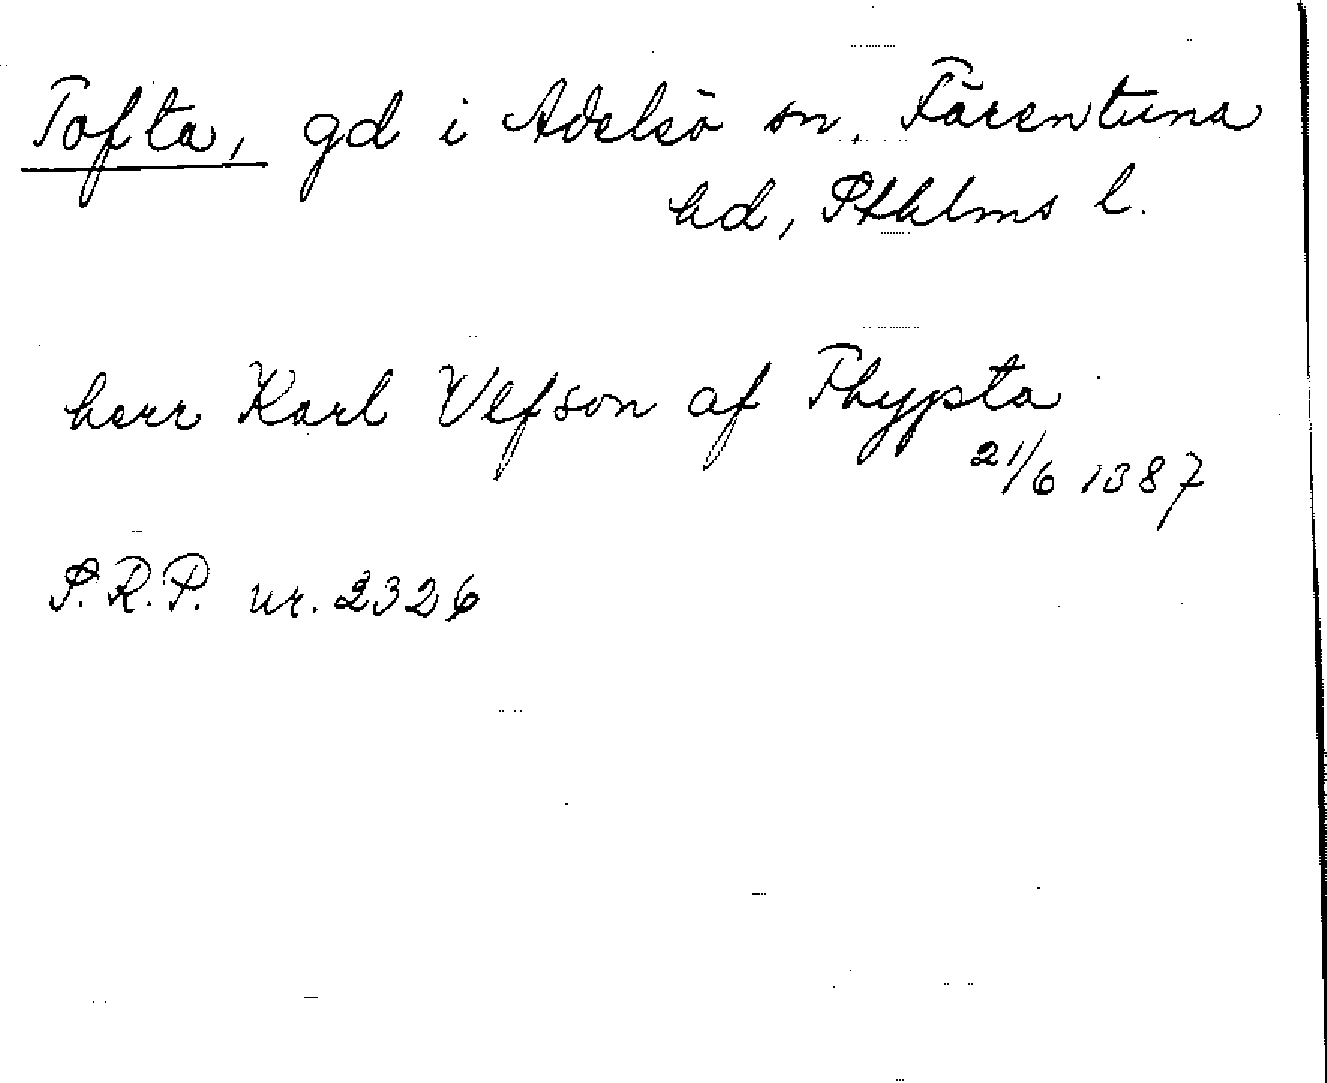 Tofta, gd i Adelsö sn, Färentuna
hd, Sthlms l.
herr Karl Vlfson af Thypta
21/6 1387
S.R.P. nr. 2326